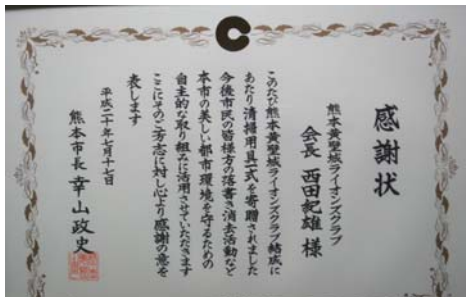 感謝状
熊本黄壁城ライオンズクラブ
会長 西田紀雄 様
このたび熊本黄壁城ライオンズクラブ結成に
あたり清掃用具一式を寄贈されました
今後市民の皆様方の落書き消去活動など
本市の美しい都市環境を守るための
自主的な取り組みに活用させていただきます
ここにそのご芳志に対し心より感謝の意を
表します
平成二十年七月十七日
熊本市長 幸山政史